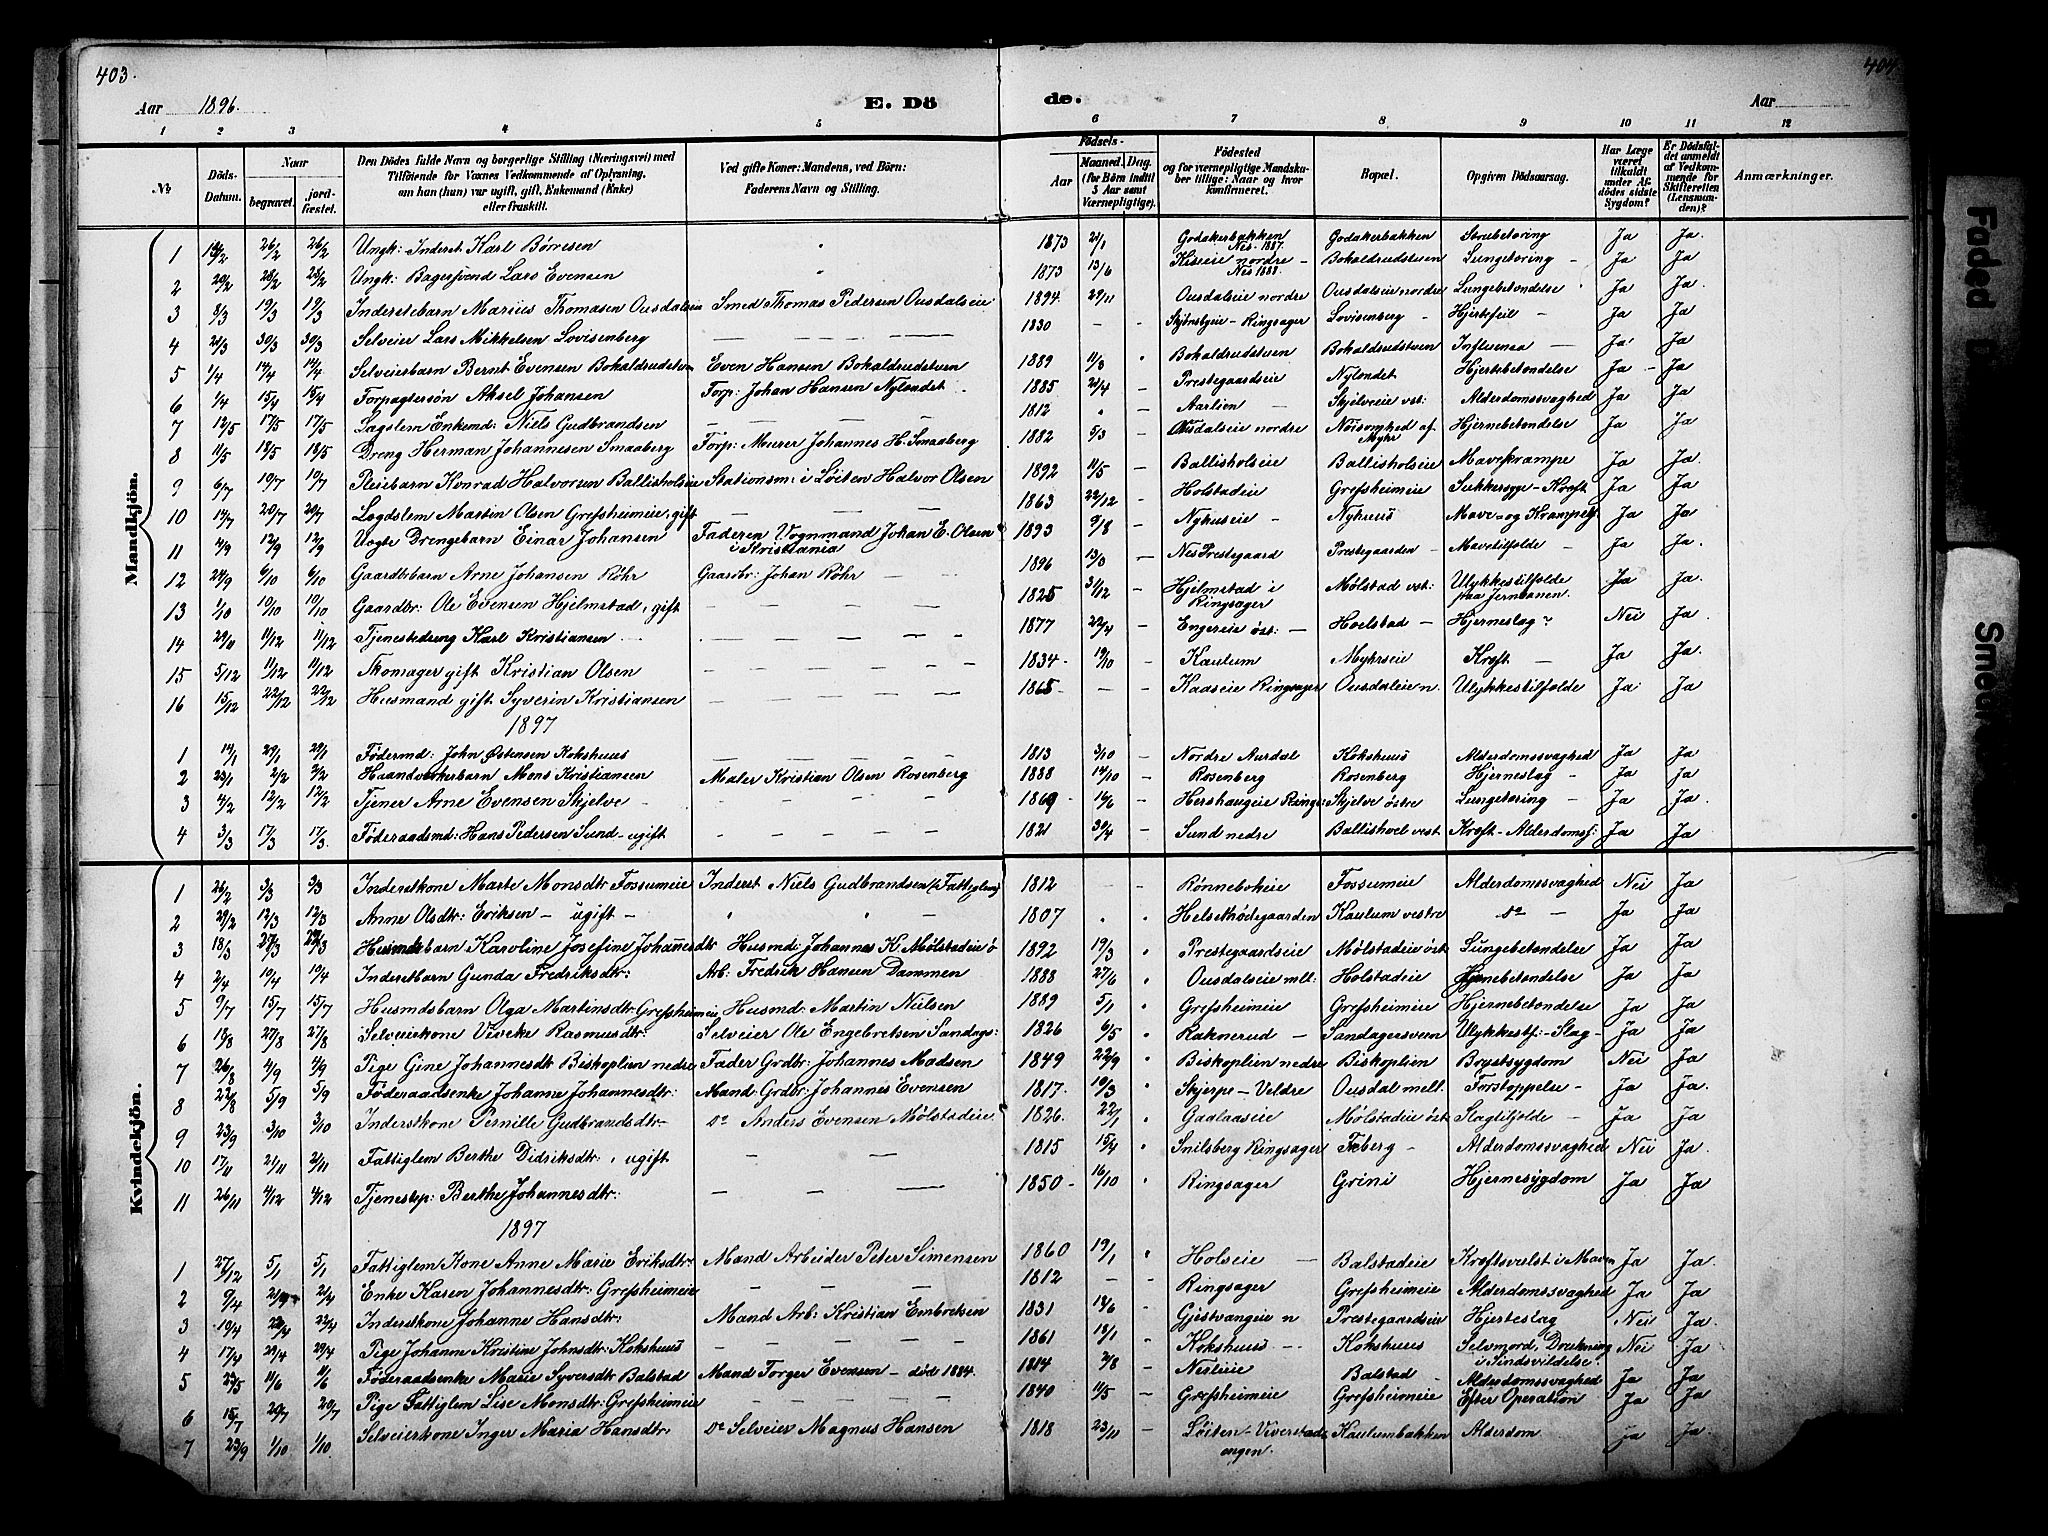 403.
404
Aar 1896.
E. Dö de.
Aar
1 2 3 4 5 6 7 8 9 10 11 12
No
Döds-Datum.
Naar begravet. jord-fæstet.
Den Dödes fulde Navn og borgerlige Stilling (Næringsvei) med Tilföiende for Voxnes Vedkommende af Oplysning, om han (hun) var ugift, gift, Enkemand (Enke) eller fraskilt.
Ved gifte Koner: Mandens, ved Börn: Faderens Navn og Stilling.
Födsels- Aar Maaned. Dag. (for Börn indtil 5 Aar samt Værnepligtige).
Födested og for værnepligtige Mandskaber tillige: Naar og hvor konfirmeret.
Bopæl.
Opgiven Dödsaarsag.
Har Læge været tilkaldt under Afdödes sidste Sygdom?
Er Dödsfaldet anmeldt af Vedkommende for Skifteretten (Lensmanden)?
Anmærkninger.
Mandkjön.
1 26/2 26/2 Ungk: Inderst Karl Börresen 1873 21/1 Godakerbakken Nes 1887. Godakerbakken Strubetæring Ja Ja.
2 20/2 28/2 28/2 Ungk: Bagersvend Lars Evensen 1873 13/6 Kiseeie nordre - Nes 1888. Bokaldrudstuen Lungetæring - Ja Ja
3 8/3 19/3 19/3 Inderstebarn Marius Thomasen Ousdalseie Smed Thomas Pedersen Ousdalseie 1894 29/11 Ousdalseie nordre Ousdalseie nordre Lungebetændelse Ja Ja
4 21/3 30/3 30/3 Selveier Lars Mikkelsen Lovisenberg 1830 - - Ringsager Lovisenberg - Hjertefeil - Ja Ja
5 1/4 14/4 14/4 Selveierbarn Bernt Evensen Bokaldrudstuen Even Hansen Bokaldrudstuen 1889 11/3 Bokaldrudstuen Bokaldrudstuen Influensa - Ja Ja
6 1/4 15/4 15/4 Forpagtersön Aksel Johansen Forp: Johan Hansen Nylondet 1885 21/4 - Prestegaardseie Nylondet Hjertebetændelse Ja Ja
7 12/5 17/5 17/5 Lagslem Enkemd: Niels Gudbrandsen 1812 - Aarlien - Skjelveie vst: Alderdomssvaghed Ja Ja
8 11/5 18/5 18/5 Dreng Herman Johannesen Smaaberg Forp: Murer Johannes H. Smaaberg 1882 5/3 - Ousdalseie nordre Nöisomhed af Myhr Hjernebetændelse Ja Ja
9 6/7 10/7 10/7 Pleiebarn Konrad Halvorsen Ballisholseie Stationsm: i Löiten Halvor Olsen 1892 11/5 - Ballisholseie Ballisholseie Mavekrampe Ja Ja.
10 14/7 20/7 20/7 Lægdslem Martin Olsen Grefsheimeie, gift 1863 22/12 - Holstadeie Grefsheimeie Sukkersyge - Kræft Ja Ja
11 4/9 12/9 12/9 Uægte Drengebarn Einar Johansen Faderen Vognmand Johan E. Olsen i Kristiania 1893 9/8 - Nyhuseie - Nyhuus Mave- og Ja Ja
12 24/9 6/10 6/10 Gaardbsbarn Arne Johansen Röhr Gaardbr: Johan Röhr 1896 - Nes Prestegaard Prestegaarden - Mavetilfælde - Ja Ja
13 1/10 10/10 10/10 Gaardbr: Ole Evensen Hjelmstad, gift 1825 31/12 - Hjelmstad i Ringsager Mölstad vst: Ulykkestilfælde paa Jernbanen. Ja Ja.
14 11/12 11/12 Tjenestedreng Karl Kristiansen 1877 22/4 - Engereie öst: - Hoelstad - Hjerneslag? Nei Ja
15 5/12 11/12 11/12 Skomager gift Kristian Olsen 1834 19/10 - Kaulum Myhrseie Kræft - Ja Ja.
16 15/12 22/12 22/12 Husmand gift Syverin Kristiansen 1865 - - Kaaseie Ringsager Ousdaleie n. Ulykkestilfælde Ja Ja
1897
1 14/1 29/1 29/1 Föderaad: John Östensen Kokshuus 1813 3/10 - Nordre Aurdal Kokshuus Alderdomssvaghed Ja Ja
2 23/1 2/2 2/2 Haandverkerbarn Mons Kristiansen Maler Kristian Olsen Rosenberg 1888 14/10 - Rosenberg Rosenberg Hjerneslag - Ja Ja.
3 4/2 12/2 12/2 Tjener Arne Evensen Skjelve - 1869 14/6 - Hershaugeie Rings: Skjelve östre Lungetæring - Ja Ja.
4 3/3 17/3 17/3 Föderaadsmd: Hans Pedersen Sund - ugift 1821 30/4 - Sund nedre Ballishoel vest Kræft - Alderdomss: Ja Ja
Kvindekjön.
1 26/2 3/3 3/3 Inderstkone Marte Monsdtr Fossumeie Inderst Niels Gudbrandsen (Fattiglem) 1812 - - Rönnebokeie Fossumeie Alderdomssvaghed Nei Ja
2 29/2 12/3 12/3 Anne Olsdtr: Eriksen - ugift - 1807 Helsethödegaarden Kaulum vestre do - Ja Ja
3 18/3 27/3 27/3 Husmdsbarn Karoline Josefine Johannesdtr Husmd: Johannes K. Mölstadeie ö 1892 19/3 Prestegaardseie Mölstadeie öst Lungebetændelse Ja Ja
4 2/4 10/4 10/4 Inderstbarn Gunda Fredriksdtr: Arb. Fredrik Hansen Dammen 1888 27/6 Ousdalseie mlt: Holstadeie Hjernebetændelse Ja Ja
5 9/7 15/7 15/7 Husmdsbarn Olga Martinsdtr: Grefsheimeie Husmd: Martin Nielsen 1889 5/1 Grefsheimeie Grefsheimeie Hjernebetændelse Ja Ja
6 19/8 27/8 27/8 Selveierkone Viveke Rasmusdtr: Selveier Ole Engebretsen Sandags: 1826 6/5 Raknerud - Sandagersveen Ulykkestf: - Slag - Ja Ja
7 26/8 4/9 4/9 Pige Gine Johannesdtr Biskoplien nedre Fader Grdbr: Johannes Madsen 1849 22/9 Biskoplien nedre Biskoplien Brystsygdom Nei Ja
8 22/8 5/9 5/9 Föderaadsenke Johanne Johannesdtr: Mand: Grdbr: Johannes Evensen 1817 10/3 Skjerpe - Veldre Ousdal melt. Forstoppelse - Ja Ja.
9 23/9 3/10 3/10 Inderstkone Pernille Gudbrandsdtr - do Anders Evensen Mölstadeie 1826. 22/1 Gaalaaseie Mölstadeie öst Slagtilfælde - Ja Ja
10 17/11 21/11 21/11 Fattiglem Berthe Didriksdtr:, ugift 1815 15/4 Snilsberg Ringsager Faberg - Alderdomssvaghed Nei Ja
11 26/11 4/12 4/12 Tjenestep: Berthe Johannesdtr: 1850 - 16/10 Ringsager Grini Hjernesygdom Ja Ja
1897
1 27/12 5/1 5/1 Fattiglem Kone Anne Marie Eriksdtr: Mand Arbeider Peter Simensen 1860 19/1 Holseie - Balstadeie Kræftsvulst i Maven Ja Ja
2 9/4 21/4 Enke Karen Johannesdtr: Grefsheimeie 1812 - - Ringsager Grefsheimeie Alderdomssvaghed Ja Ja
3 19/4 22/4 22/4 Inderstkone Johanne Hansdtr: Mand Arb: Kristian Embretsen 1831 14/6 - Gjestvangeie n Prestegaardseie Hjerteslag Nei Ja.
4 17/4 29/4 29/4 Pige Johanne Kristine Johnsdtr: Kokshuus 1861 13/1 - Kokshuus - Kokshuus Selvmord, Drukning i Sindsvildelse. Nei Ja
5 23/5 11/6 Föderaadsenke Marie Syversdtr Balstad Mand Torger Evensen - död 1884. 1814 2/8 - Balstad Alderdomssvaghed Ja Ja
6 15/7 20/7 20/7 Pige Fattiglem Lise Monsdtr: Grefsheimeie 1840 11/5 - Grefsheimeie Grefsheimeie Efter Operation Ja Ja
7 23/9 1/10 1/10. Selveierkone Inger Maria Hansdtr: do Selveier Magnus Hansen 1818 23/11 - Löiten - Kaulumbakken Alderdom Ja Ja.
engen.
Faded